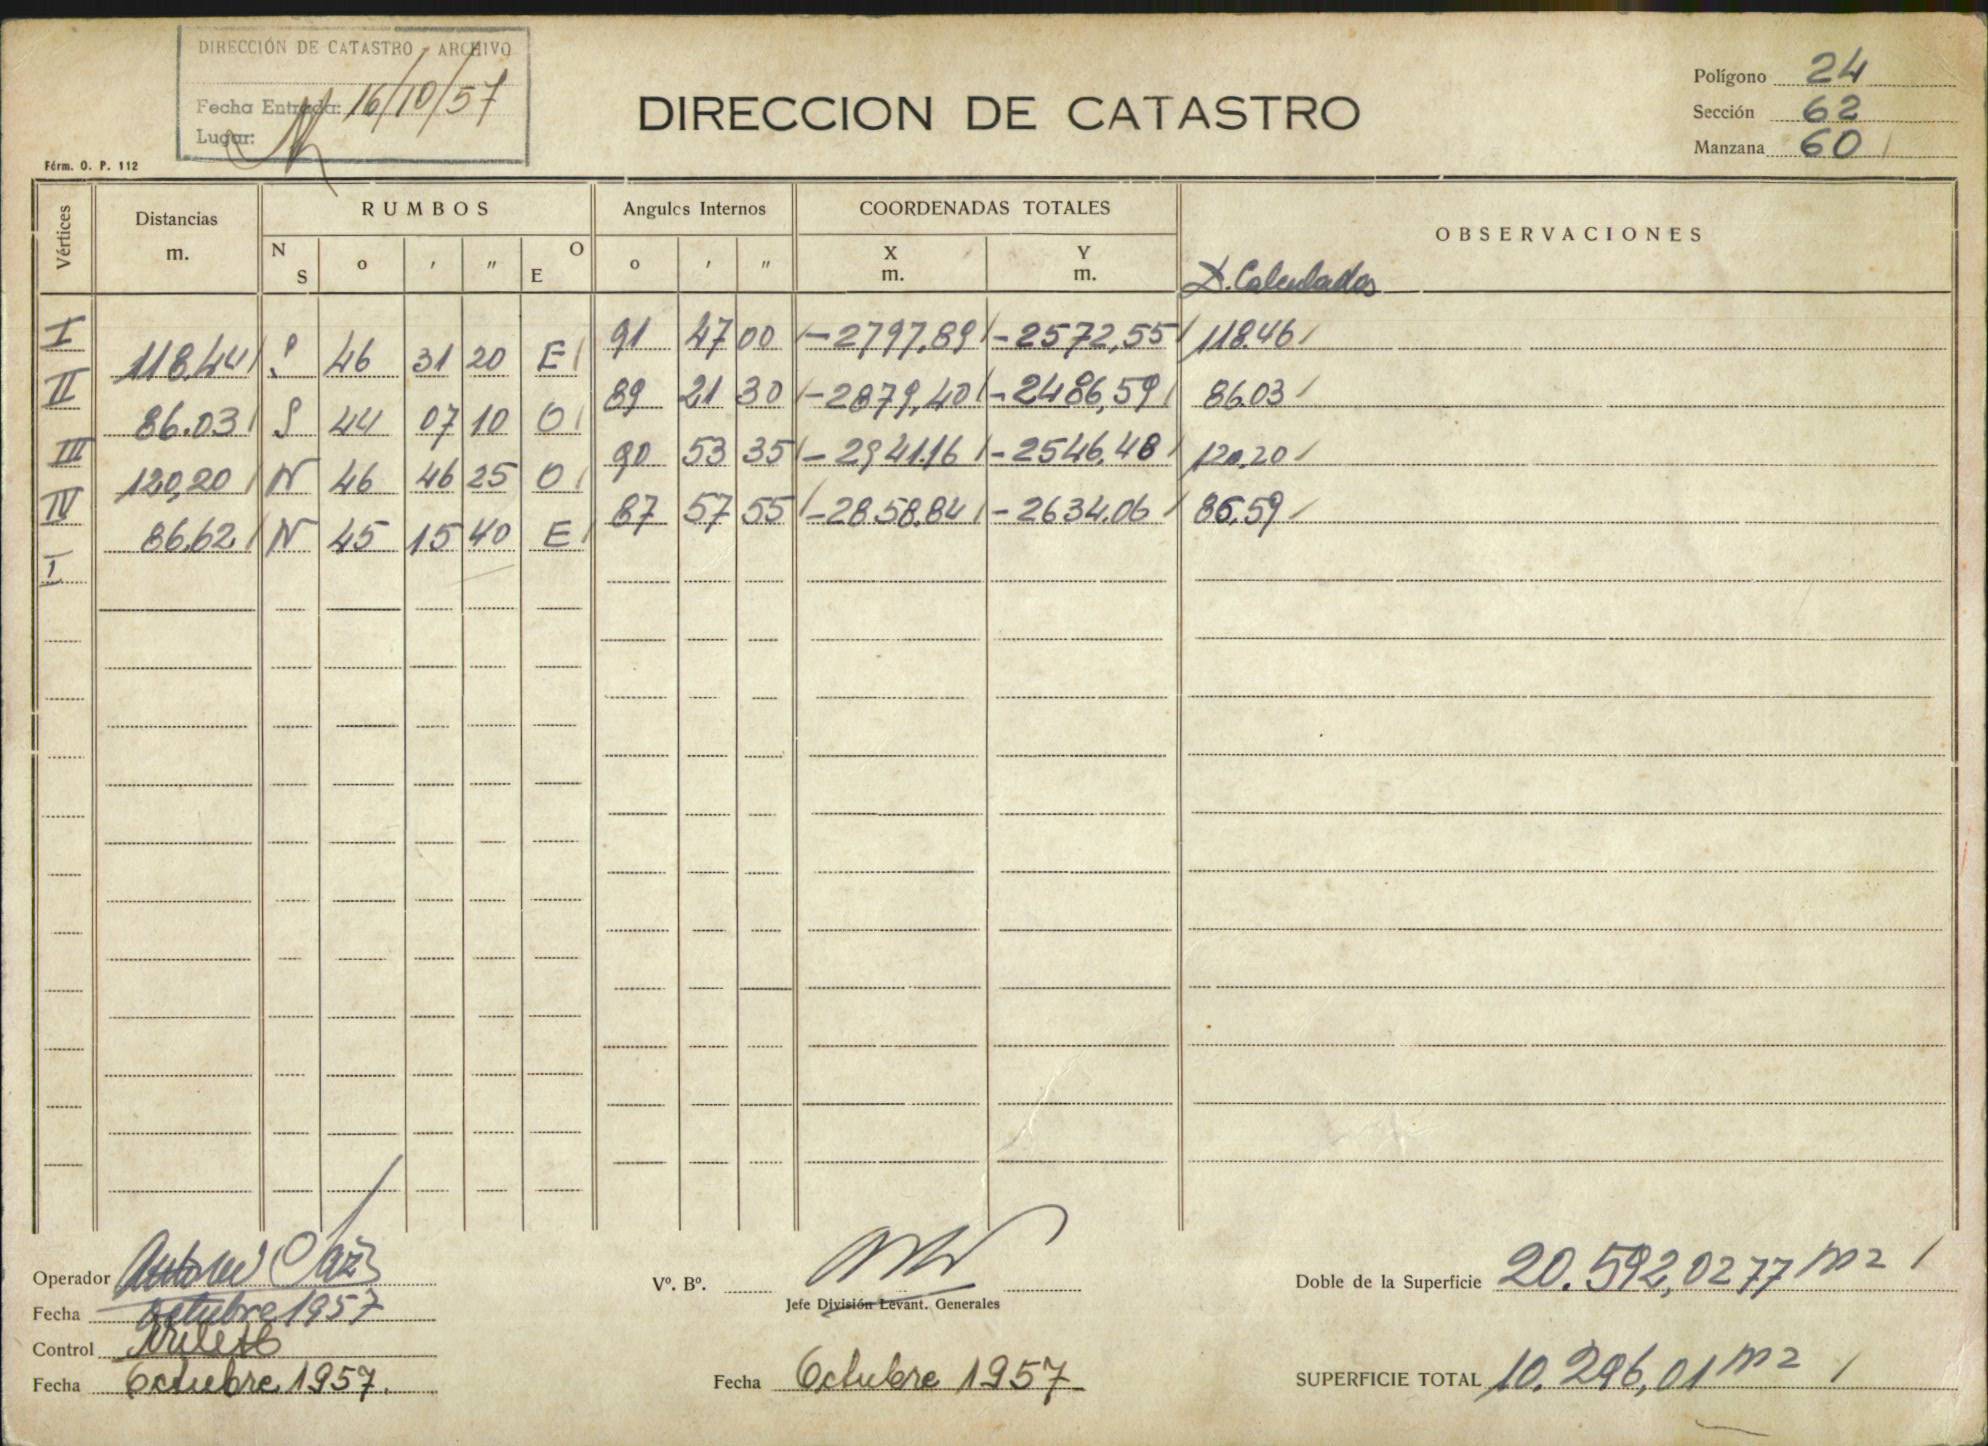 DIRECCIÓN DE CATASTRO - ARCHIVO
Fecha Entrada: 16/10/57
Lugar:
DIRECCION DE CATASTRO
Polígono 24
Sección 62
Manzana 60
Fórm. O. P. 112
Vértices
Distancias
m.
RUMBOS
N S ° ' " E O
Angulos Internos
° ' "
COORDENADAS TOTALES
X
m.
Y
m.
OBSERVACIONES
D. Calculados
I 91 47 00 -2797,89 -2572,55 118.46
118.44 S 46 31 20 E
II 89 21 30 -2879,40 -2486,59 86.03
86.03 S 44 07 10 O
III 90 53 35 -2941.16 -2546,48 120,20
120,20 N 46 46 25 O
IV 87 57 55 -2858.84 -2634.06 86,59
86.62 N 45 15 40 E
I
Operador
Fecha Octubre 1957
Control
Fecha Octubre 1957.
Vº. Bº.
Jefe División Levant. Generales
Fecha Octubre 1957
Doble de la Superficie 20.592,0277 m2
SUPERFICIE TOTAL 10.296,01 m2